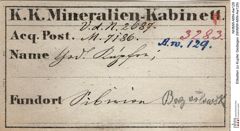 K. K. Mineralien-Kabinett.
V.d.N. 2687.
Acq. Post. M. 7186. 3283.
A.w. 129.
Name Ged. Kupfer,
Fundort Sibirien